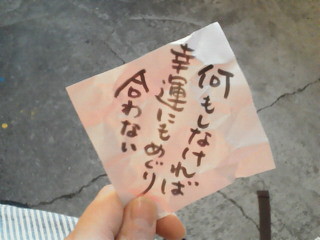 何もしなければ
幸運にもめぐり
合わない